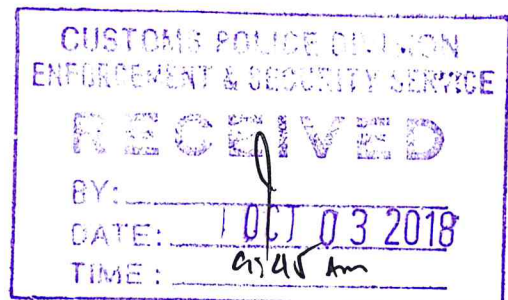 CUSTOMS POLICE DIVISION
ENFORCEMENT & SECURITY SERVICE
RECEIVED
BY:
DATE: OCT 03 2018
TIME: 9:45 AM